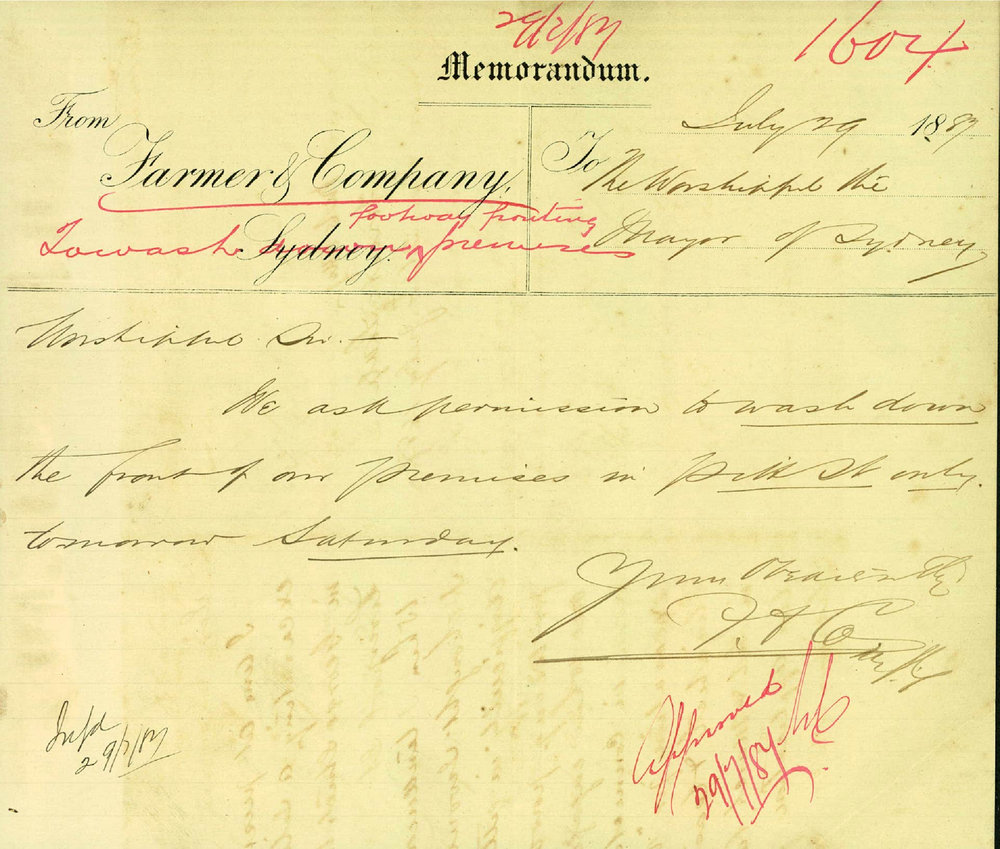 29/7/87
1604
Memorandum.
From
July 29 1887
Farmer & Company,
To
The Worshipful the
footway fronting
To wash premises
Sydney.
Mayor of Sydney
Worshipful Sir. —
We ask permission to wash down
the front of our premises in Pitt St only.
tomorrow Saturday.
Yours Obediently
F & Co
Approved
29/7/87
Inf/d
29/7/87